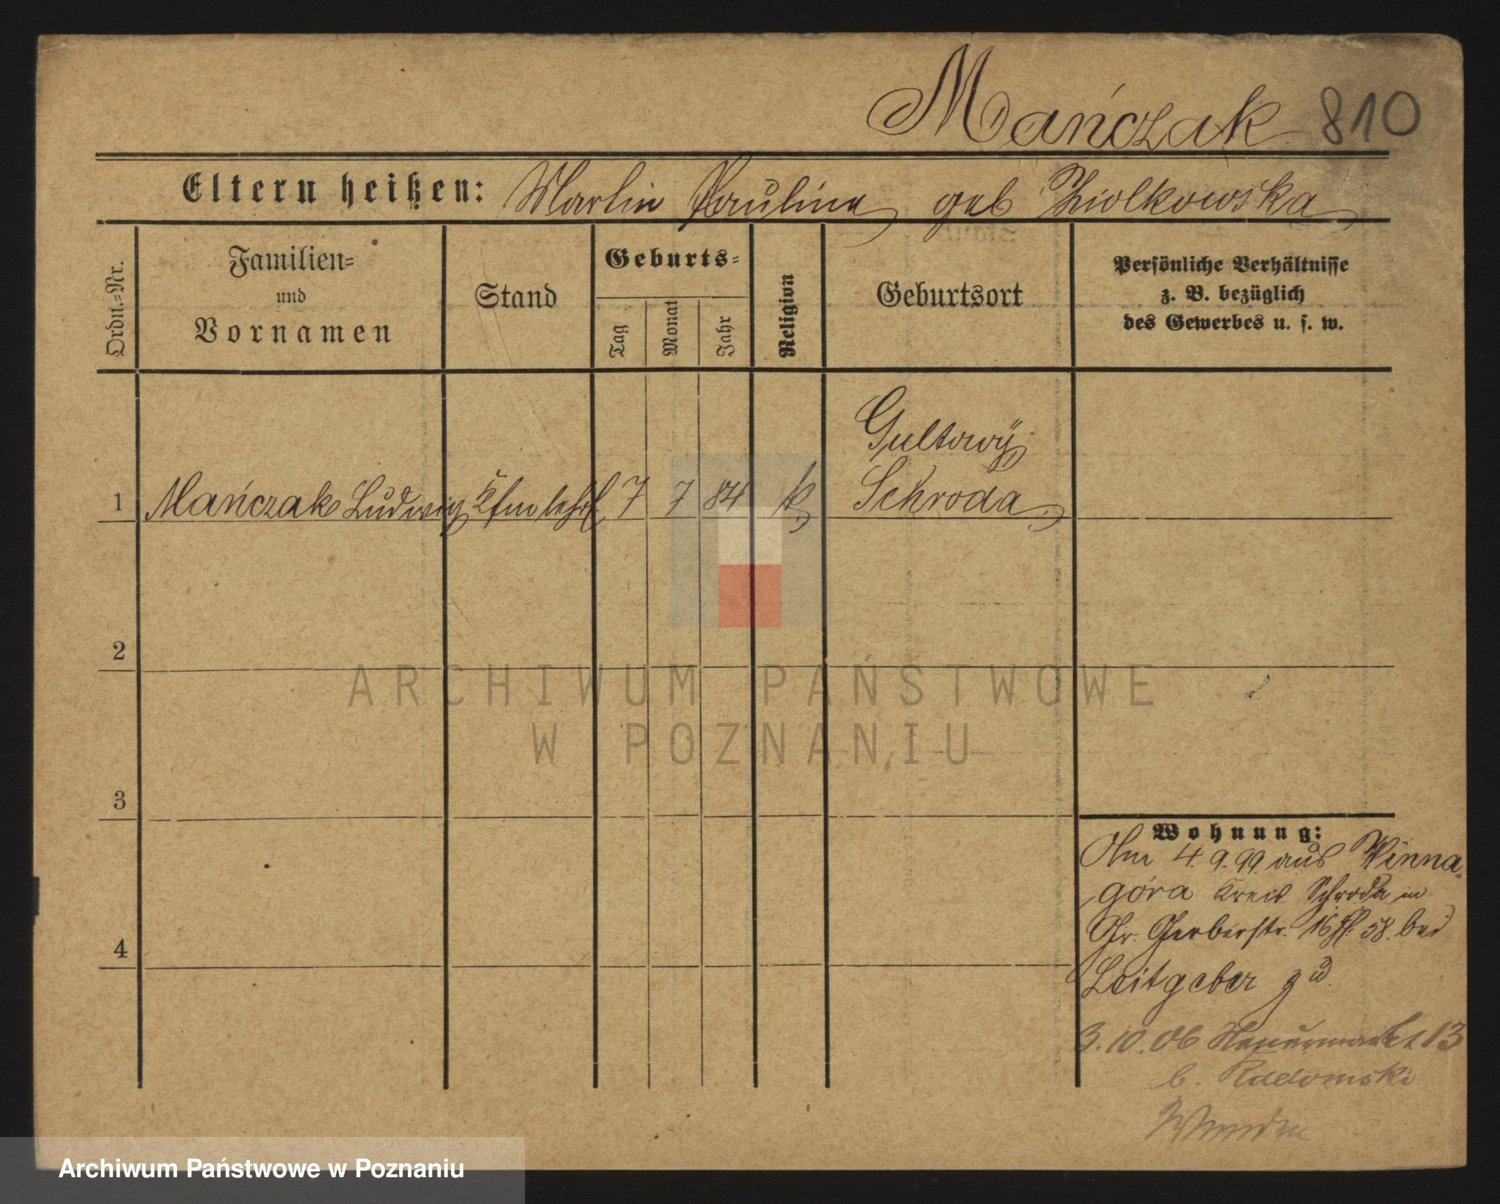 Mańczak 810
Eltern heißen: Martin Paulina geb Ziolkowska
Ordn.-Nr.
Familien-
und
Vornamen
Stand
Geburts-
Tag
Monat
Jahr
Religion
Geburtsort
Persönliche Verhältnisse
z. B. bezüglich
des Gewerbes u. s. w.
1 Mańczak Ludwig Kfmlehrl 7 7 84 k
Gultowÿ
Schroda
2
3
4
Wohnung:
4.9.99 aus Winna-
góra Kreis Schroda in
Gerberstr. 16 58. bei
Leitgeber
3.10.06 13
b. Radomski
ARCHIWUM PAŃSTWOWE
W POZNANIU
Archiwum Państwowe w Poznaniu